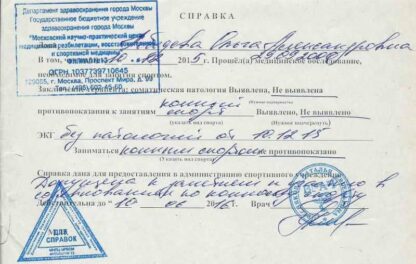 СПРАВКА
Департамент здравоохранения города Москвы
Государственное бюджетное учреждение
здравоохранения города Москвы
"Московский научно-практический центр
медицинской реабилитации, восстановительной
и спортивной медицины
ОГРН 1037739710645
129085, г. Москва, Проспект Мира, д. 99
Тел.: (495) 602-45-60
Ольга Александровна
В том, 2015 г. Прошёл(а) медицинское обследование,
необходимое для занятия спортом.
Заключение терапевта: соматическая патология Выявлена, Не выявлена
(Нужное подчеркнуть)
противопоказания к занятиям конный спорт Выявлено, Не выявлено
(указать вид спорта) (Нужное подчеркнуть)
ЭКГ без патологий от 10.12.15
Заниматься конным спортом не противопоказано
(Указать вид спорта)
Справка дана для предоставления в администрацию спортивного учреждения
Допущена к занятиям и участию в
соревнованиях по конному спорту
Действительна до "10" 06 2016 г. Врач
ДЛЯ
СПРАВОК